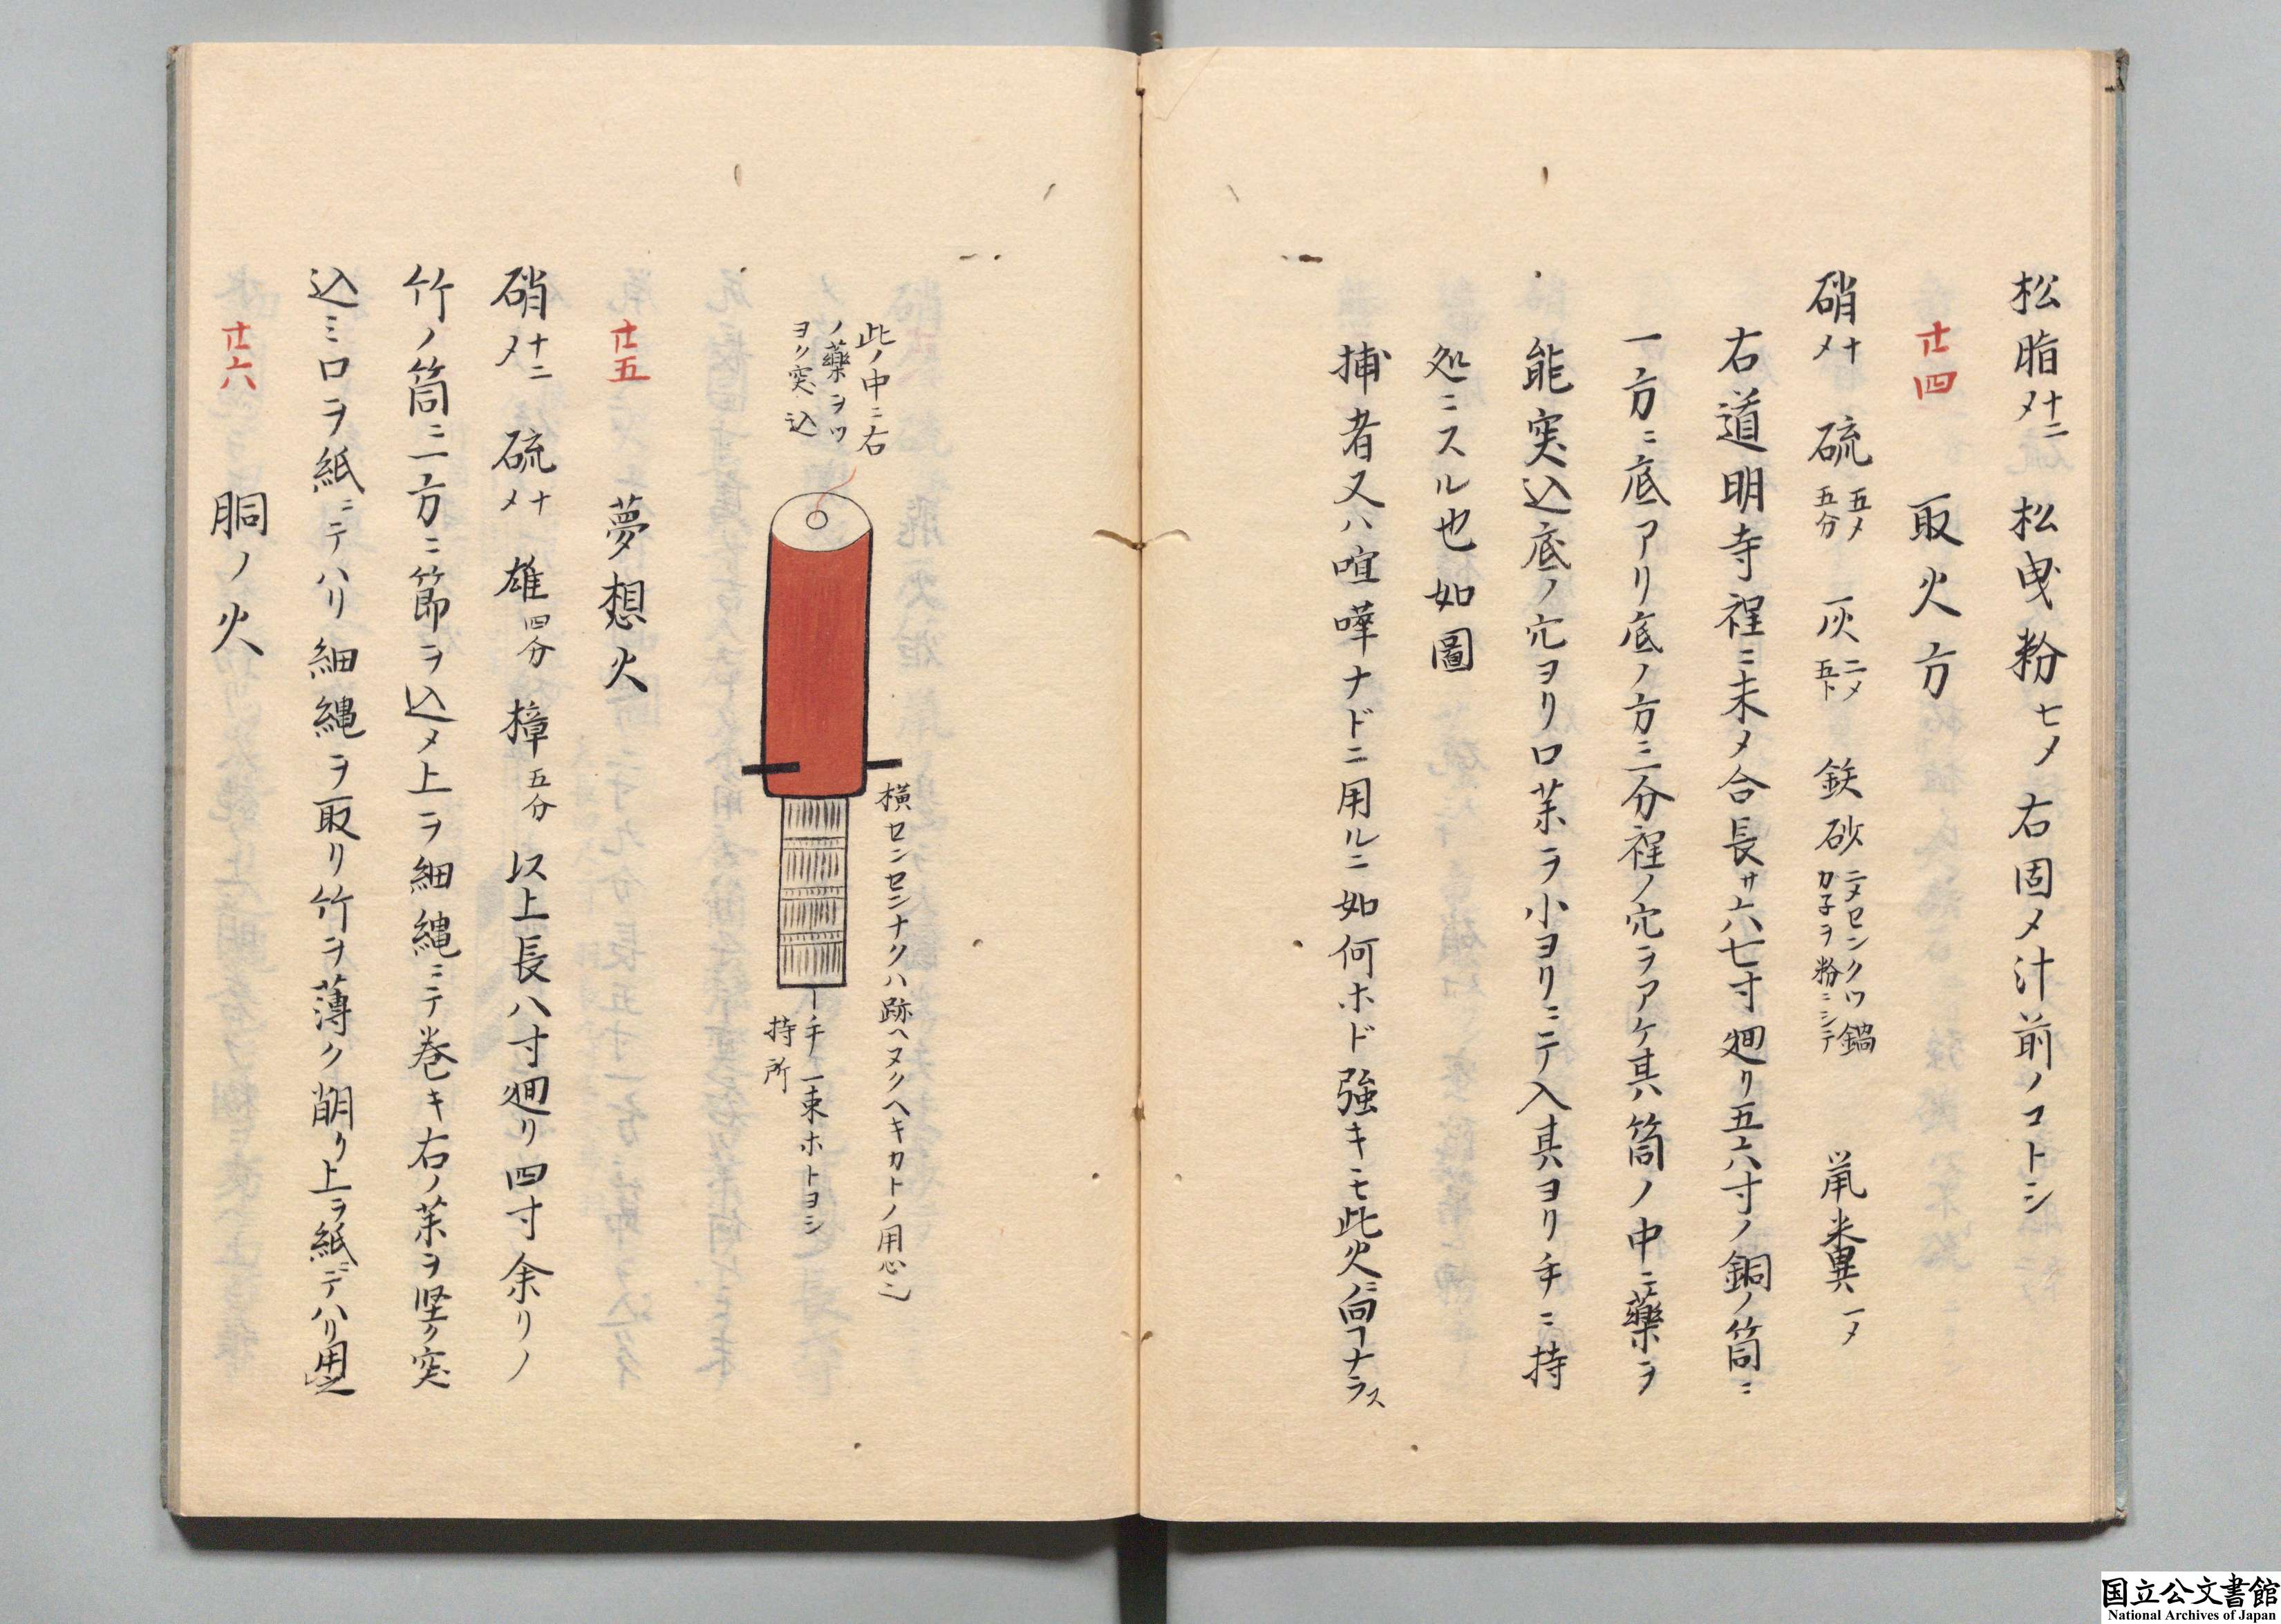 松脂十二メ 松曳粉七メ 右固メ汁前ノコトシ
廿四 取火方
硝十メ 硫五メ五分 灰二メ五卜 鉄砂二メセンクツ鍋カ子ヲ粉ニシテ 鼠糞一メ
右道明寺程ニ末メ合長サ六七寸廻リ五六寸ノ銅ノ筒ニ
一方ニ底アリ底ノ方ニ三分程ノ穴ヲアケ其筒ノ中ニ藥ヲ
能突込底ノ穴ヨリ口薬ヲ小ヨリニテ入其ヨリ手ニ持
処ニスル也如圖
捕者又ハ喧嘩ナドニ用ルニ如何ホド強キモ此火ニ向フナラス
此ノ中ニ右
ノ藥ヲツ
ヨク突込
横センセンナクハ跡ヘヌクヘキカトノ用心ニ
手一束ホトヨシ
持所
廿五 夢想火
硝十二メ 硫十メ 雄四分 樟五分 以上長八寸廻リ四寸余リノ
竹ノ筒ニ一方ニ節ヲ込メ上ヲ細縄ニテ巻キ右ノ薬ヲ堅ク突
込ミ口ヲ紙ニテハリ細縄ヲ取リ竹ヲ薄ク削リ上ヲ紙デハリ用之
廿六 胴ノ火
国立公文書館
National Archives of Japan